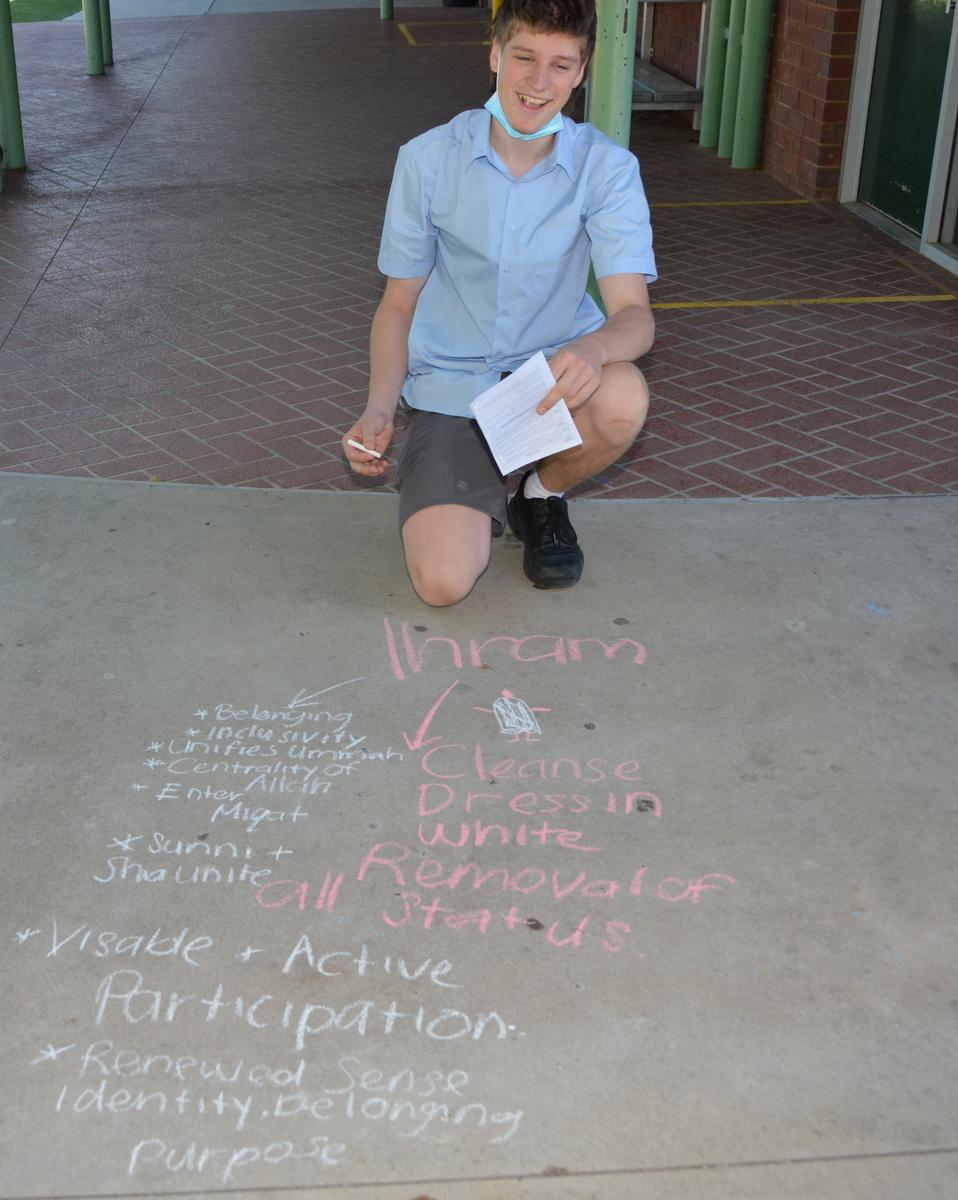 Ihram
* Belonging
* inclusivity
* Unifies Ummah
* Centrality of
Allah
* Enter
Miqat
* Sunni +
Shaunite
Cleanse
Dress in
white
Removal of
all Status
* Visable + Active
Participation
* Renewed Sense
Identity, Belonging
purpose